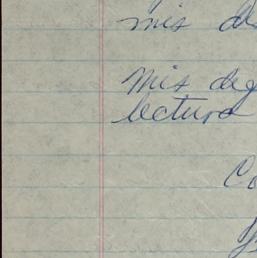 mis de
Mis deg
lectura
Co